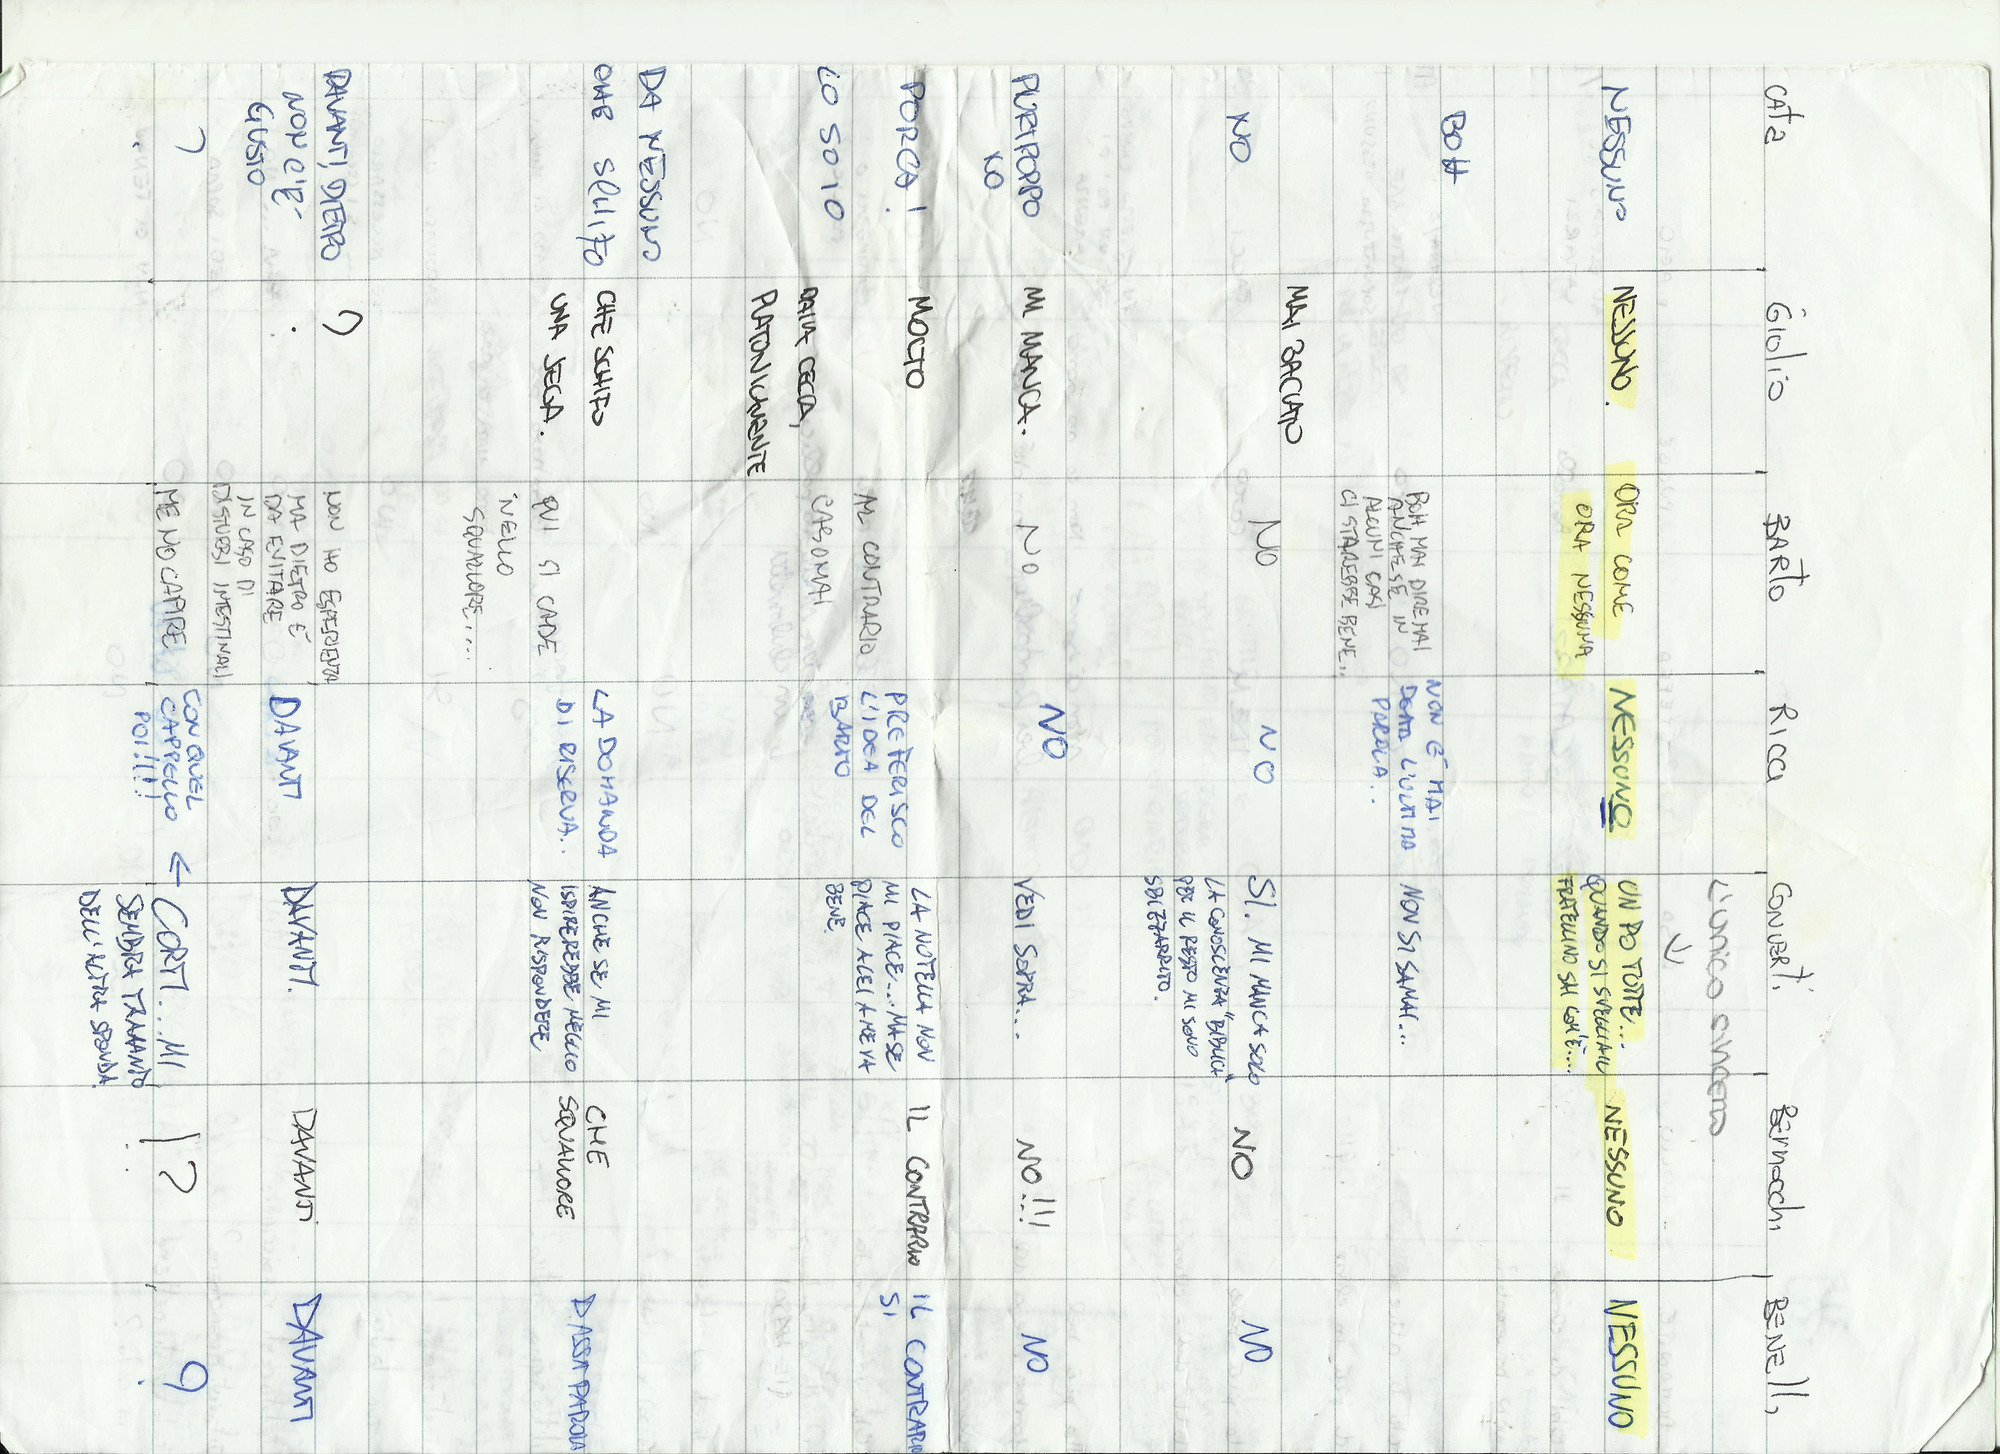 Cata Giolio Barto Ricci Converti Bernacchi Benelli
L'unico sincero
NESSUNO
NESSUNO.
ORA COME
ORA NESSUNA
NESSUNO
UN PO TUTTE...
QUANDO SI SVEGLIA IL
FRATELLINO SAI COM'È...
NESSUNO
NESSUNO
BOH
BOH MAI DIRE MAI
ANCHE SE IN
ALCUNI CASI
CI STAREBBE BENE.
NON È MAI
DETTA L'ULTIMA
PAROLA...
NON SI SA MAI...
NO
MAI BACIATO
NO
NO
SI. MI MANCA SOLO
LA CONOSCENZA "BIBLICA"
PER IL RESTO MI SONO
SBIZZARRITO.
NO
NO
PURTROPPO
NO
MI MANCA.
NO
NO
VEDI SOPRA...
NO!!!
NO
PORCA!
LO SO IO
MOLTO
DALLA CECCA,
PLATONICAMENTE
AL CONTRARIO
CASOMAI
PREFERISCO
L'IDEA DEL
BARTO
LA NUTELLA NON
MI PIACE... MA SE
PIACE A LEI A ME VA
BENE.
IL CONTRARIO
IL CONTRARIO
SI
DA NESSUNO
CHE SCHIFO
CHE SCHIFO
UNA SEGA.
QUI SI CADE
NELLO
SQUALLORE....
LA DOMANDA
DI RISERVA..
ANCHE SE MI
ISPIREREBBE MEGLIO
NON RISPONDERE
CHE
SQUALLORE
PASSA PAROLA
DAVANTI, DIETRO
NON C'È
GUSTO
?
NON HO ESPERIENZA
MA DIETRO È
DA EVITARE
IN CASO DI
DISTURBI INTESTINALI
DAVANTI
DAVANTI.
DAVANTI
DAVANTI
?
ME NO CAPIRE
CON QUEL
CAPPELLO
POI!!!!
← CORTI... MI
SEMBRA TRAMANTO
DELL'ALTRA SPONDA
!?
?